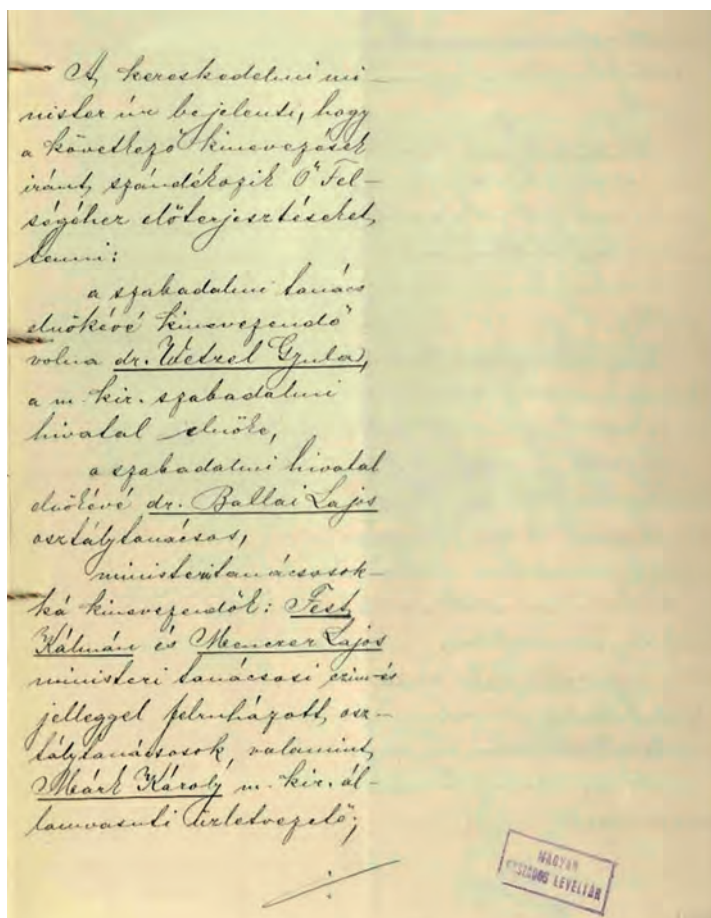 A kereskedelmi mi-
nister úr bejelenti, hogy
a következő kinevezések
iránt szándékozik Ő Fel-
ségéhez előterjesztéseket
tenni:
a szabadalmi tanács
elnökévé kinevezendő
volna dr. Wetzel Gyula,
a m. kir. szabadalmi
hivatal elnöke,
a szabadalmi hivatal
elnökévé dr. Ballai Lajos
osztálytanácsos,
ministeri tanácsosok-
ká kinevezendők: Fest
Kálmán és Menczer Lajos
ministeri tanácsosi czim és
jelleggel felruházott osz-
tálytanácsosok, valamint
Márk Károly m. kir. ál-
lamvasuti üzletvezető;
MAGYAR
ORSZÁGOS LEVÉLTÁR